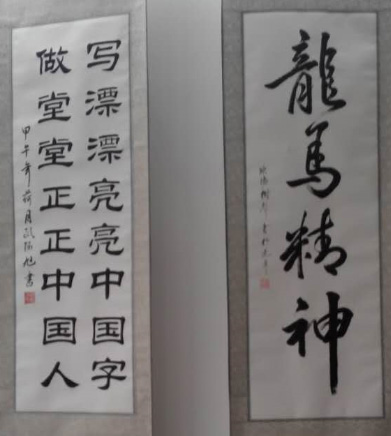 写漂漂亮亮中国字
做堂堂正正中国人
甲午年荷月欧阳旭书
龍马精神